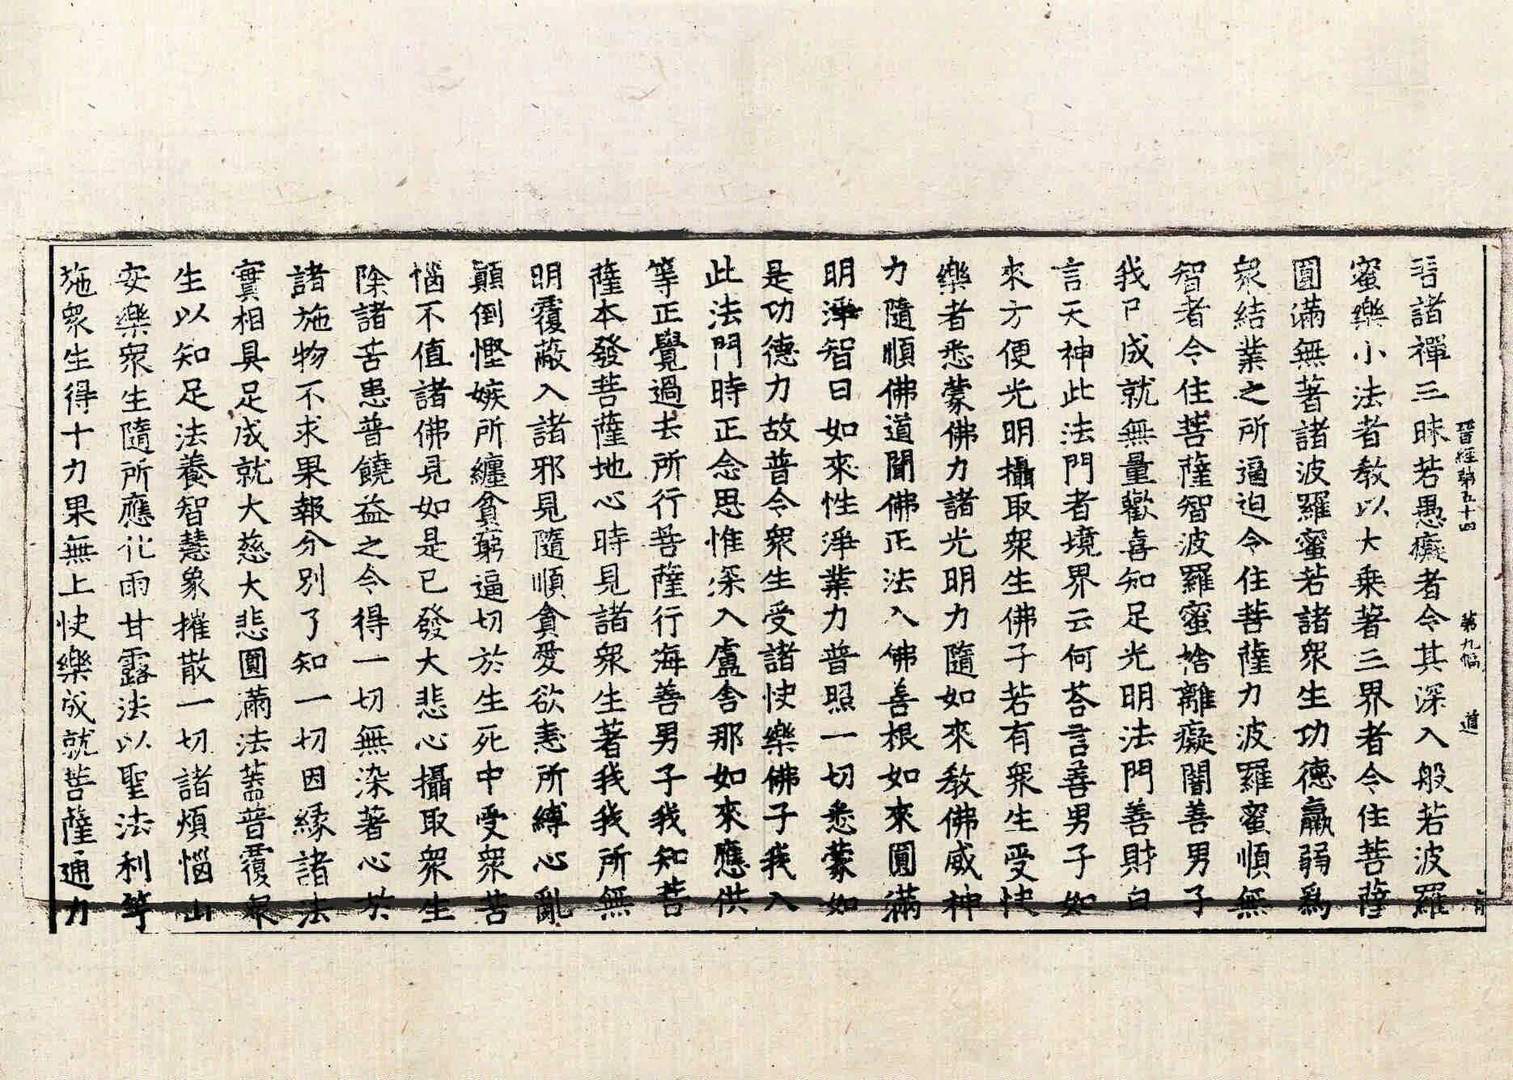 習諸禪三昧若愚癡者令其深入般若波羅
晉經第五十四 第九幅 道
蜜樂小法者教以大乘著三界者令住菩薩
圓滿無著諸波羅蜜若諸衆生功德羸弱爲
衆結業之所逼迫令住菩薩力波羅蜜順無
智者令住菩薩智波羅蜜捨離癡闇善男子
我已成就無量歡喜知足光明法門善財白
言天神此法門者境界云何荅言善男子如
來方便光明攝取衆生佛子若有衆生受快
樂者悉蒙佛力諸光明力隨如來教佛威神
力隨順佛道聞佛正法入佛善根如來圓滿
明淨智日如來性淨業力普照一切悉蒙如
是功德力故普令衆生受諸快樂佛子我入
此法門時正念思惟深入盧舍那如來應供
等正覺過去所行菩薩行海善男子我知菩
薩本發菩薩地心時見諸衆生著我我所無
明覆蔽入諸邪見隨順貪愛欲恚所縛心亂
顚倒慳嫉所纏貧窮逼切於生死中受衆苦
惱不值諸佛見如是已發大悲心攝取衆生
除諸苦患普饒益之令得一切無染著心於
諸施物不求果報分別了知一切因緣諸法
實相具足成就大慈大悲圓滿法蓋普覆衆
生以知足法養智慧象摧散一切諸煩惱山
安樂衆生隨所應化雨甘露法以聖法利等
施衆生得十力果無上快樂成就菩薩通力